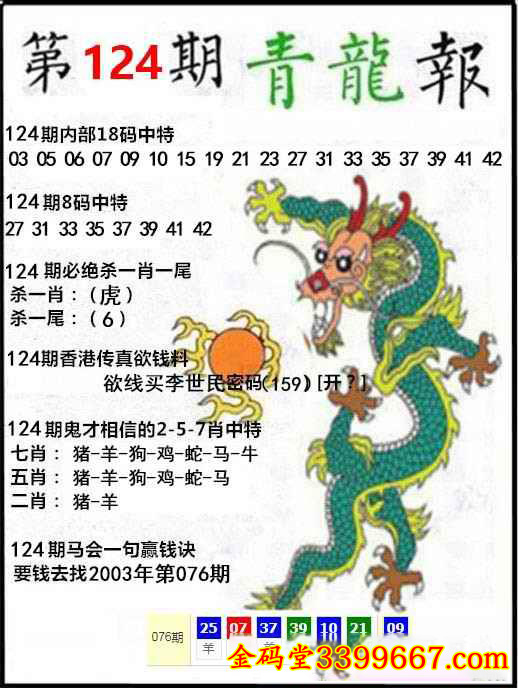 第124期 青龍報
124期内部18码中特
03 05 06 07 09 10 15 19 21 23 27 31 33 35 37 39 41 42
124期8码中特
27 31 33 35 37 39 41 42
124期必绝杀一肖一尾
杀一肖：（虎）
杀一尾：（6）
124期香港传真欲钱料
欲线买李世民密码(159) [开？]
124期鬼才相信的2-5-7肖中特
七肖：猪-羊-狗-鸡-蛇-马-牛
五肖：猪-羊-狗-鸡-蛇-马
二肖：猪-羊
124期马会一句赢钱诀
要钱去找2003年第076期
076期 25 07 37 39 10 21 09
羊
金码堂3399667.com